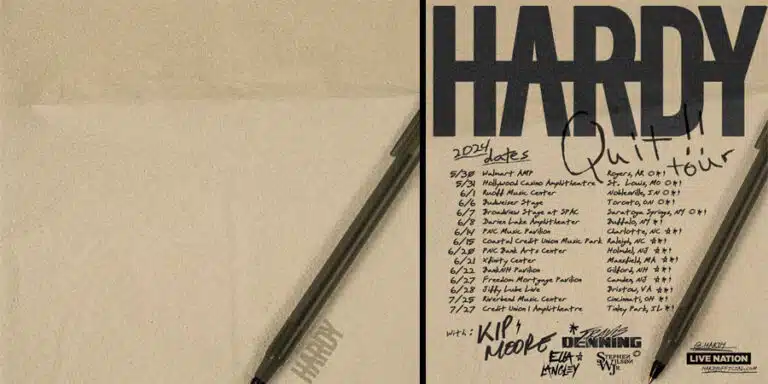 HARDY
HARDY
Quit!!
tour
2024
dates
5/30 Walmart AMP Rogers, AR
5/31 Hollywood Casino Amphitheatre St. Louis, MO
6/1 Ruoff Music Center Noblesville, IN
6/6 Budweiser Stage Toronto, ON
6/7 Broadview Stage at SPAC Saratoga Springs, NY
6/8 Darien Lake Amphitheater Buffalo, NY
6/14 PNC Music Pavilion Charlotte, NC
6/15 Coastal Credit Union Music Park Raleigh, NC
6/20 PNC Bank Arts Center Holmdel, NJ
6/21 Xfinity Center Mansfield, MA
6/22 BankNH Pavilion Gilford, NH
6/27 Freedom Mortgage Pavilion Camden, NJ
6/28 Jiffy Lube Live Bristow, VA
7/25 Riverbend Music Center Cincinnati, OH
7/27 Credit Union 1 Amphitheatre Tinley Park, IL
with: KIP MOORE
TRAVIS DENNING
ELLA LANGLEY
STEPHEN WILSON JR
@HARDY
LIVE NATION
HARDYOFFICIAL.COM